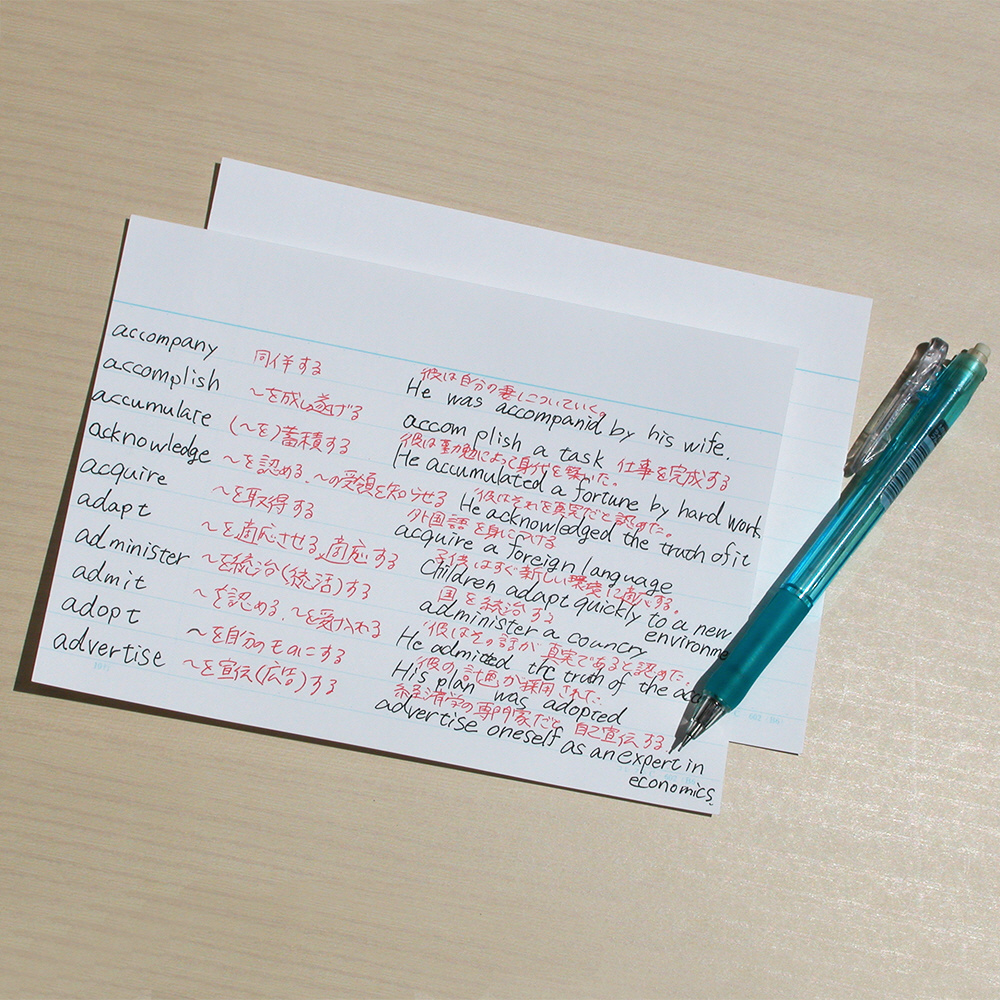 accompany 同伴する 彼は自分の妻についていく。
He was accompanid by his wife.
accomplish ～を成し遂げる accomplish a task 仕事を完成する
accumulate (～を)蓄積する 彼は勤勉によって身代を築いた。
He accumulated a fortune by hard work
acknowledge ～を認める、～の受領を知らせる 彼はそれを真実だと認めた。
He acknowledged the truth of it
acquire ～を取得する 外国語を身につける
acquire a foreign language
adapt ～を適応させる,適応する 子供はすぐ新しい環境に適応する。
Children adapt quickly to a new
environme
administer ～を統治(統活)する 国を統治する
administer a country
admit ～を認める、～を受け入れる 彼はその話が真実であると認めた。
He admitted the truth of the
adopt ～を自分のものにする 彼の計画が採用された。
His plan was adopted
advertise ～を宣伝(広告)する 経済学の専門家だと自己宣伝する
advertise oneself as an expert in
economics.